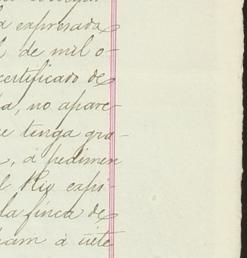 a expresada
l de mil o-
certificado de
da, no apare-
ue tenga gra-
n, á pedimen
l Rio expi-
la finca de
á siete